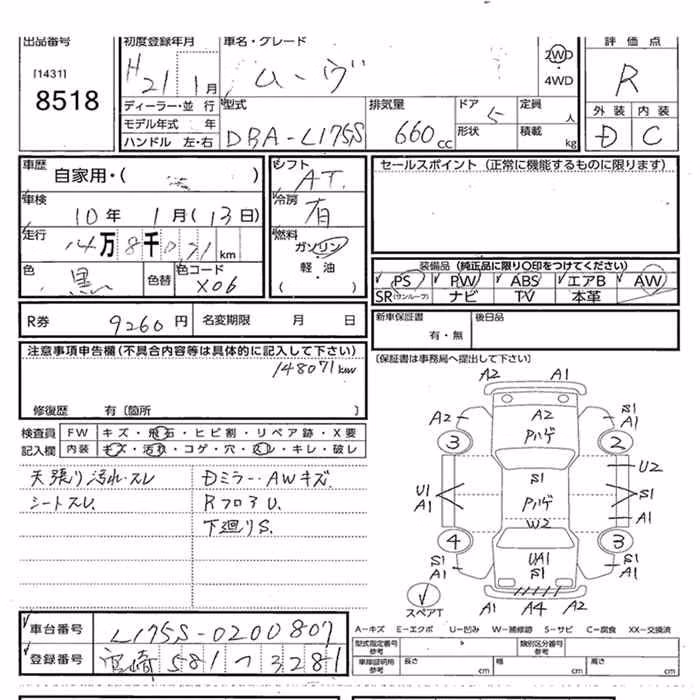 出品番号 初度登録年月 車名・グレード 評価点
[1431] H 21 1月 ムーヴ 2WD R
8518 ・4WD
ディーラー・並行 型式 排気量 ドア 定員 外装 内装
モデル年式 年 DBA-L175S 660cc 5 人 D C
ハンドル 左・右 形状 積載 kg
車歴 自家用・( ) シフト AT. セールスポイント (正常に機能するものに限ります)
車検 10年 1月(13日) 冷房 有
走行 14万8千071km 燃料 ガソリン
軽・油
( )
装備品 (純正品に限り〇印をつけてください)
色 黒 色替 色コード X06 PS PW ABS エアB AW
SR(サンルーフ) ナビ TV 本革
R券 9260円 名変期限 月 日 新車保証書 後日品
有・無
注意事項申告欄(不具合内容等は具体的に記入して下さい) (保証書は事務局へ提出して下さい)
148071km
修復歴 有〔箇所 〕
検査員 FW キズ・飛石・ヒビ割・リペア跡・X要
記入欄 内装 キズ・汚れ・コゲ・穴・スレ・キレ・破レ
天張り汚れ・スレ Dミラー・AWキズ.
シートスレ. RフロアU.
下廻りS.
A2 A1
A2 A2 S1
A1
3 Pハゲ 2
U2
S1
U1 Pハゲ S1
A1
W2 A1
4 UA1 3
S1 S1 S1
A1 A1
スペアT A1 A4 A2
車台番号 L175S-0200807
登録番号 宮崎 581 つ 3281
A−キズ E−エクボ U−凹み W−補修跡 S−サビ C−腐食 XX−交換済
型式指定番号 参考 類別区分番号 参考
車庫証明用 参考 長さ cm 幅 cm 高さ cm